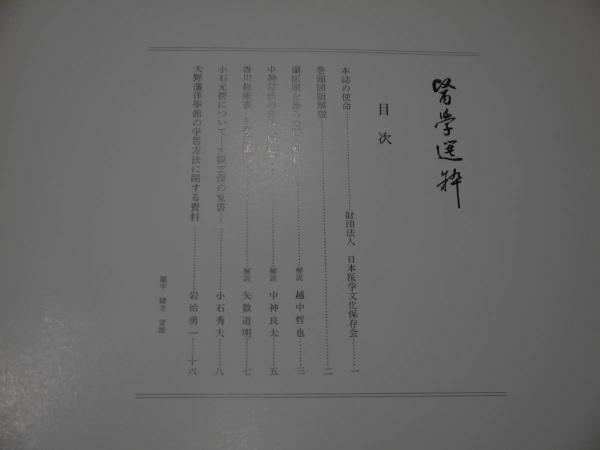 醫學選粹
目次
本誌の使命 財団法人 日本医学文化保存会 一
巻頭図版解説 二
解説 越中哲也 三
中神 解説 中神良太 五
香川 解説 矢数道明 七
小石元 について 覚書 小石秀夫 八
大野藩洋学館の学習方法に関する資料 岩治勇一 十六
題字 緒方